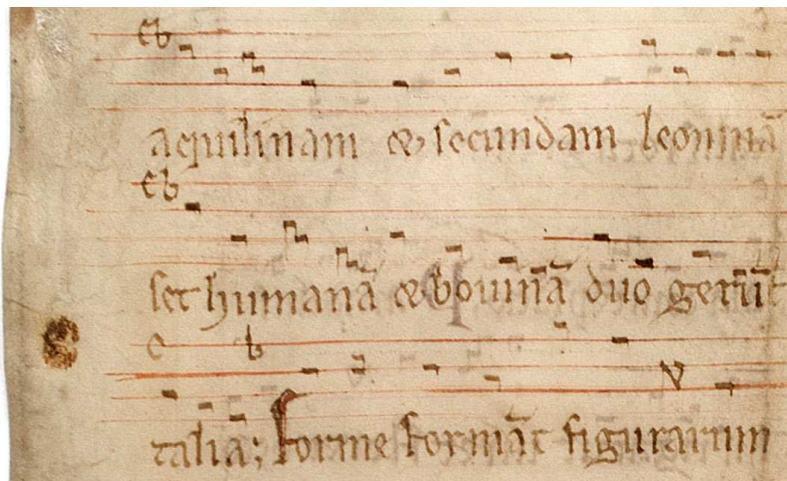 aquilinam & secundam leoninā
set humanā & bouinā duo gerūt
talia; Forme formāt figurarum